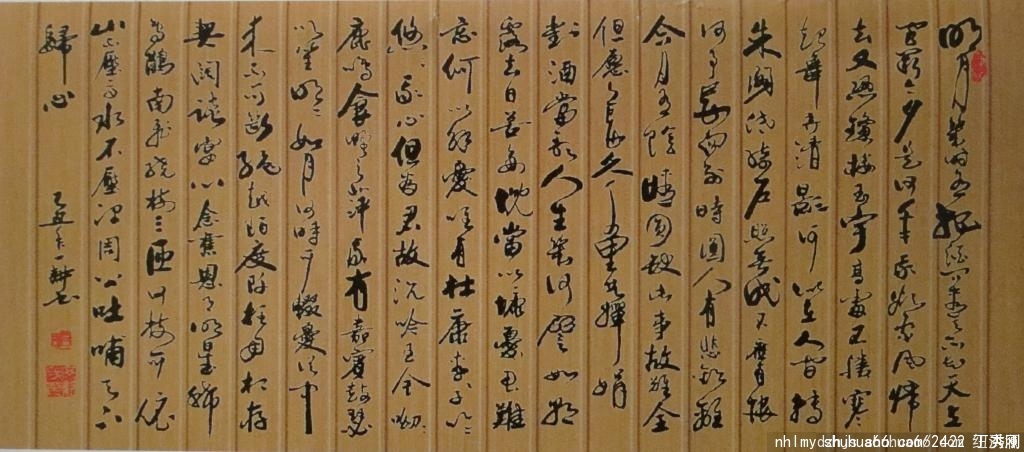 明月几时有把酒问青天不知天上
宫阙今夕是何年我欲乘风归
去又恐琼楼玉宇高处不胜寒
起舞弄清影何似在人间转
朱阁低绮户照无眠不应有恨
何事长向别时圆人有悲欢离
合月有阴晴圆缺此事古难全
但愿人长久千里共婵娟
对酒当歌人生几何譬如朝
露去日苦多慨当以慷忧思难
忘何以解忧唯有杜康青青子衿
悠悠我心但为君故沉吟至今呦呦
鹿鸣食野之苹我有嘉宾鼓瑟
吹笙明明如月何时可掇忧从中
来不可断绝越陌度阡枉用相存
契阔谈宴心念旧恩月明星稀
乌鹊南飞绕树三匝何枝可依
山不厌高水不厌深周公吐哺天下
歸心